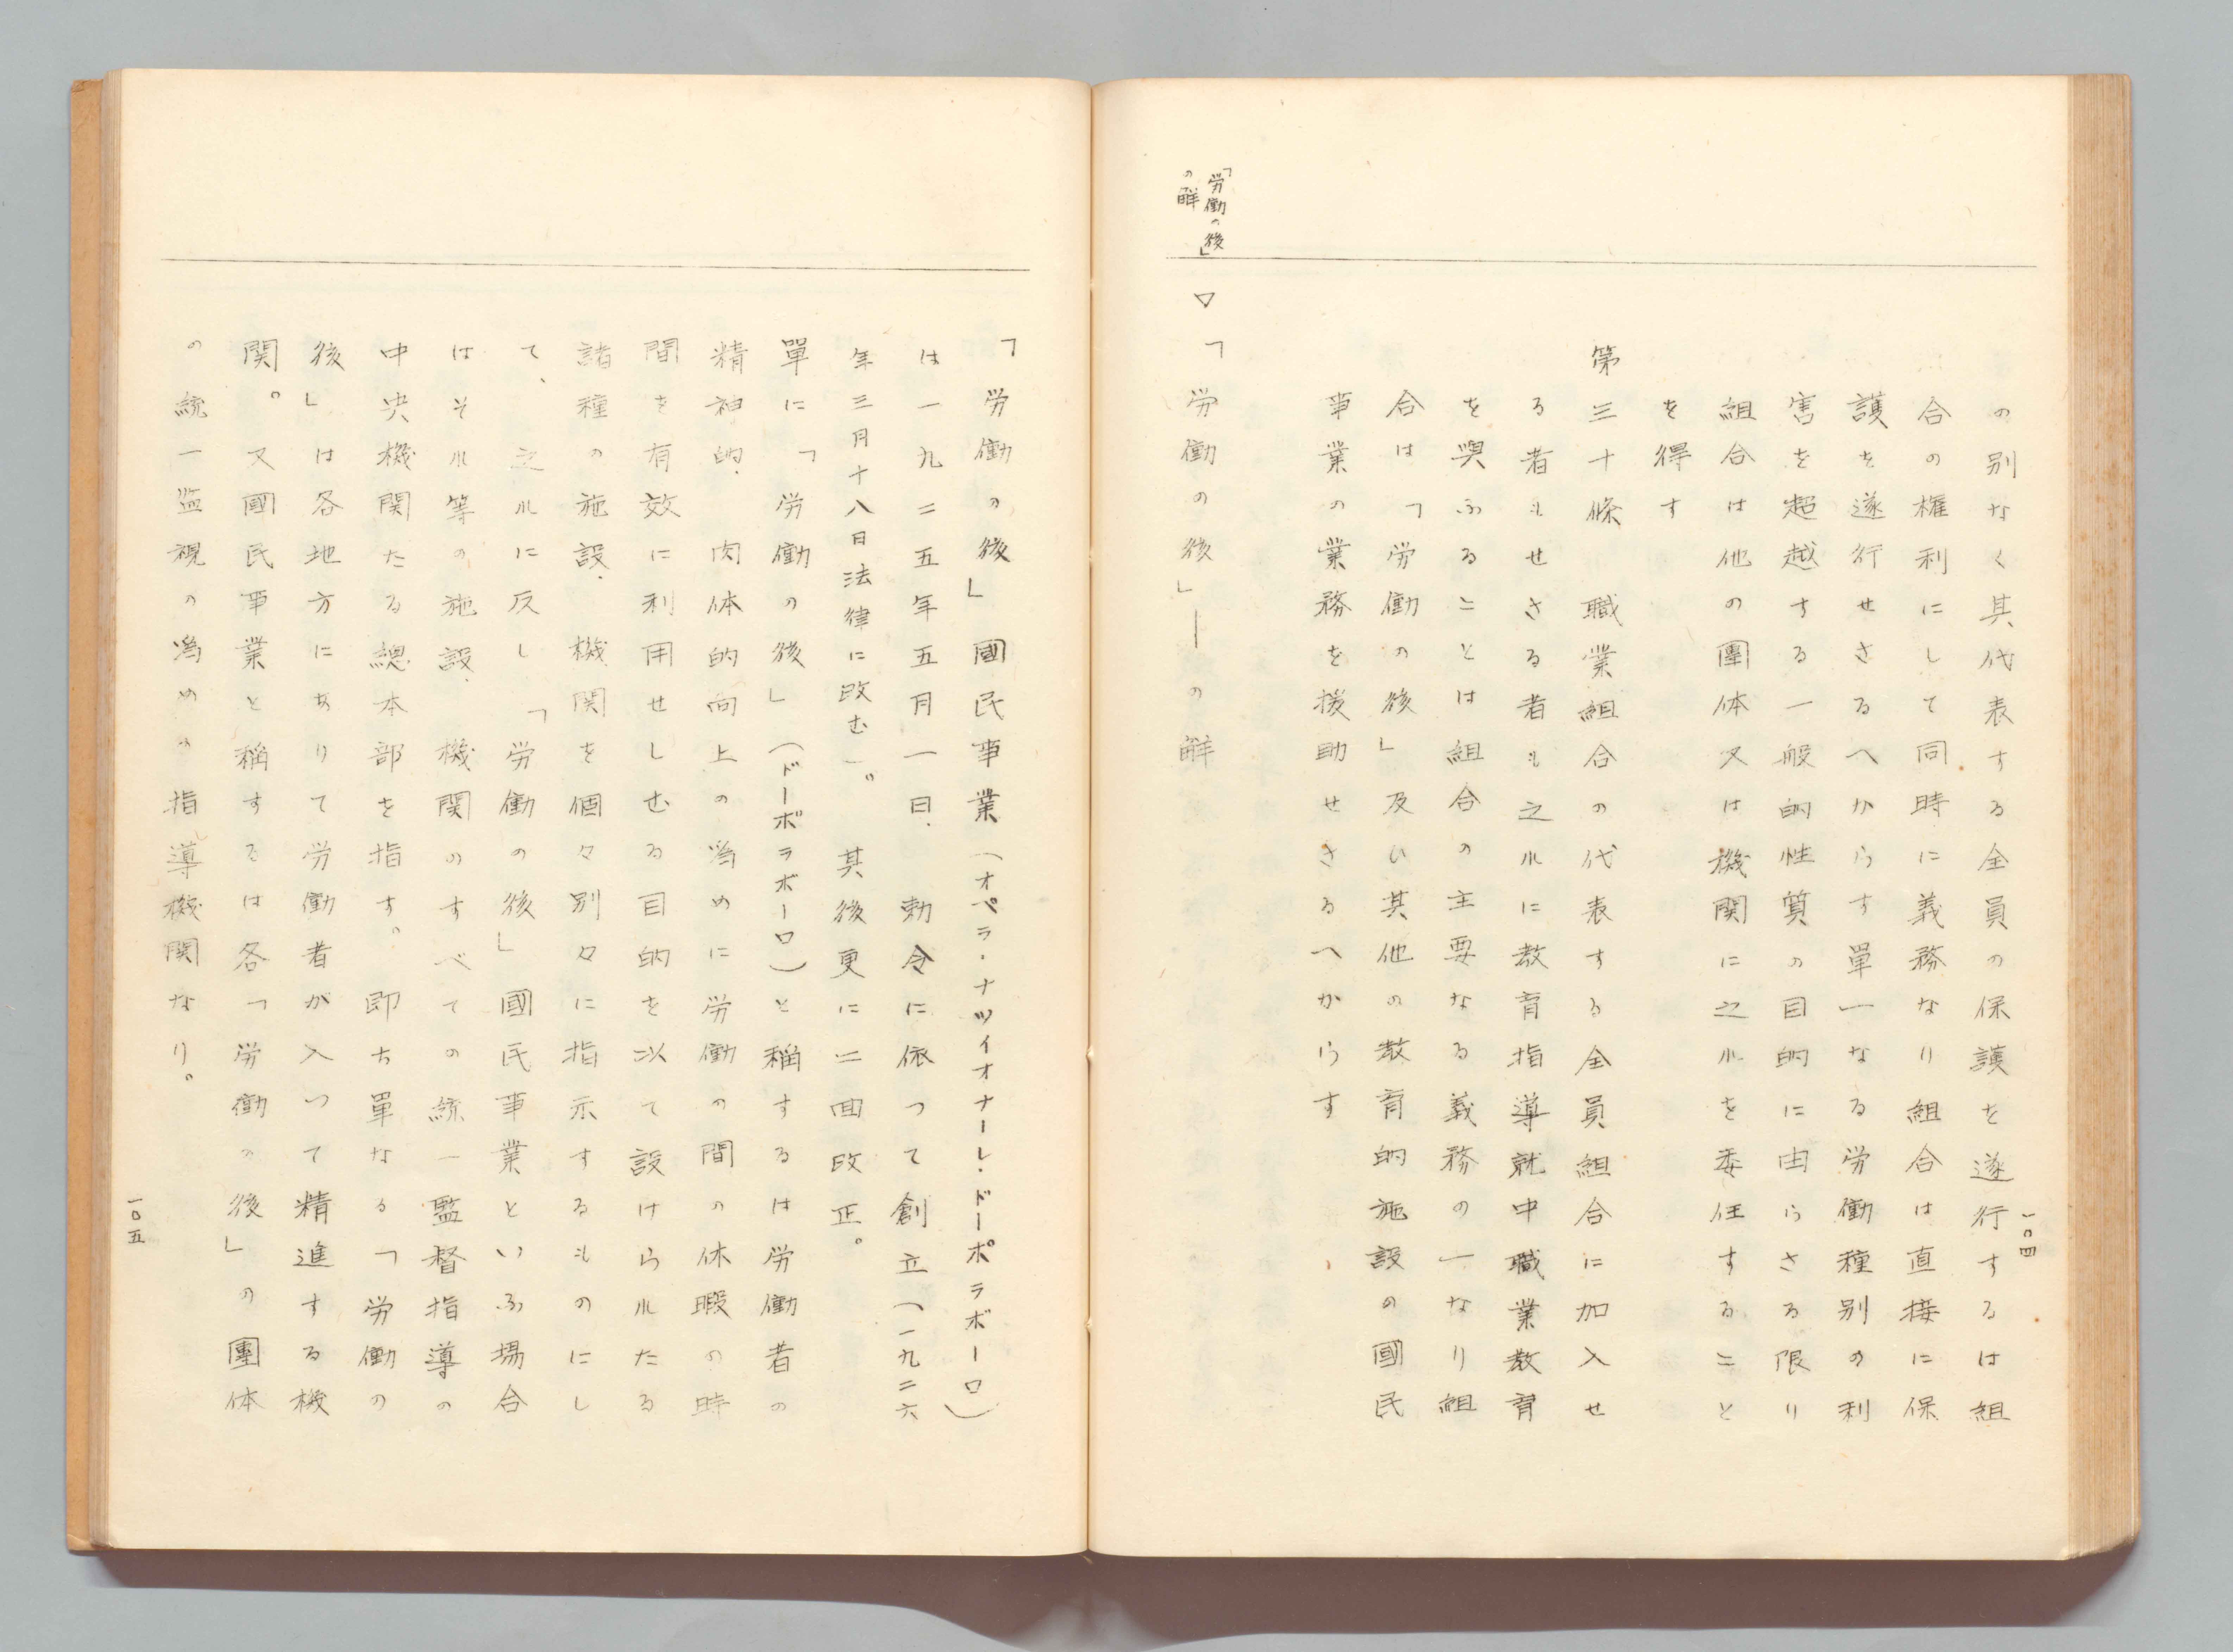 一〇四
の別なく其代表する全員の保護を遂行するは組
合の権利にして同時に義務なり組合は直接に保
護を遂行せさるへからす單一なる労働種別の利
害を超越する一般的性質の目的に由らさる限り
組合は他の團体又は機関に之れを委任すること
を得す
第三十條　職業組合の代表する全員組合に加入せ
る者もせさる者も之れに教育指導就中職業教育
を與ふることは組合の主要なる義務の一なり組
合は「労働の後」及ひ其他の教育的施設の國民
事業の業務を援助せさるへからす
「労働の後」
の解
▽「労働の後」―の解
「労働の後」國民事業（オペラ・ナツイオナーレ・ドーポラボーロ）
は一九二五年五月一日、勅令に依つて創立（一九二六
年三月十八日法律に改む）。其後更に二回改正。
單に「労働の後」（ドーポラボーロ）と稱するは労働者の
精神的、肉体的向上の為めに労働の間の休暇の時
間を有效に利用せしむる目的を以て設けられたる
諸種の施設、機関を個々別々に指示するものにし
て、之れに反し「労働の後」國民事業といふ場合
はそれ等の施設、機関のすべての統一監督指導の
中央機関たる總本部を指す。即ち單なる「労働の
後」は各地方にありて労働者が入つて精進する機
関。又國民事業と稱するは各「労働の後」の團体
の統一監視の為めの指導機関なり。
一〇五